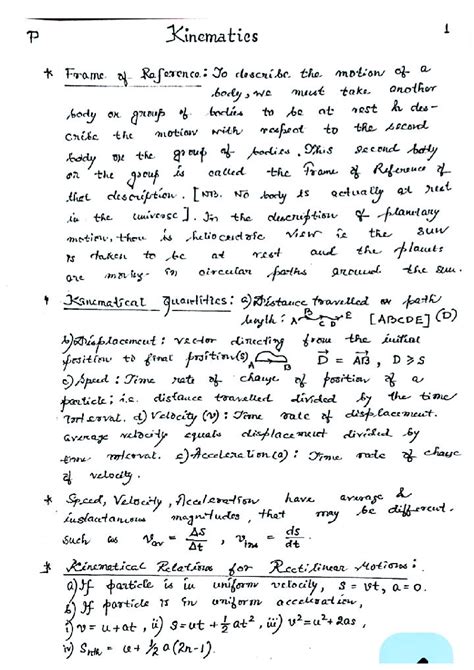 P Kinematics 1
* Frame of Reference: To describe the motion of a
body, we must take another
body or group of bodies to be at rest & des-
cribe the motion with respect to the second
body or the group of bodies. This second body
or the group is called the Frame of Reference of
that description. [NB. No body is actually at rest
in the universe]. In the description of planetary
motion, there is heliocentric view ie the sun
is taken to be at rest and the planets
are moving in circular paths around the sun.
* Kinematical quantities: a) Distance travelled or path
length: A B C D E [ABCDE] (D)
b) Displacement: vector directing from the initial
position to final position (S) A B D⃗ = AB⃗, D ≥ S
c) Speed: Time rate of change of position of a
particle; i.e. distance travelled divided by the time
interval. d) Velocity (v): Time rate of displacement.
average velocity equals displacement divided by
time interval. e) Acceleration (a): Time rate of change
of velocity.
* Speed, Velocity, Acceleration have average &
instantaneous magnitudes, that may be different.
such as v_av = ΔS/Δt, v_ins = ds/dt.
* Kinematical Relations for Rectilinear Motions:
a) If particle is in uniform velocity, S = vt, a = 0.
b) If particle is in uniform acceleration,
i) v = u + at, ii) S = ut + ½at², iii) v² = u² + 2as,
iv) S_nth = u + ½ a (2n-1).